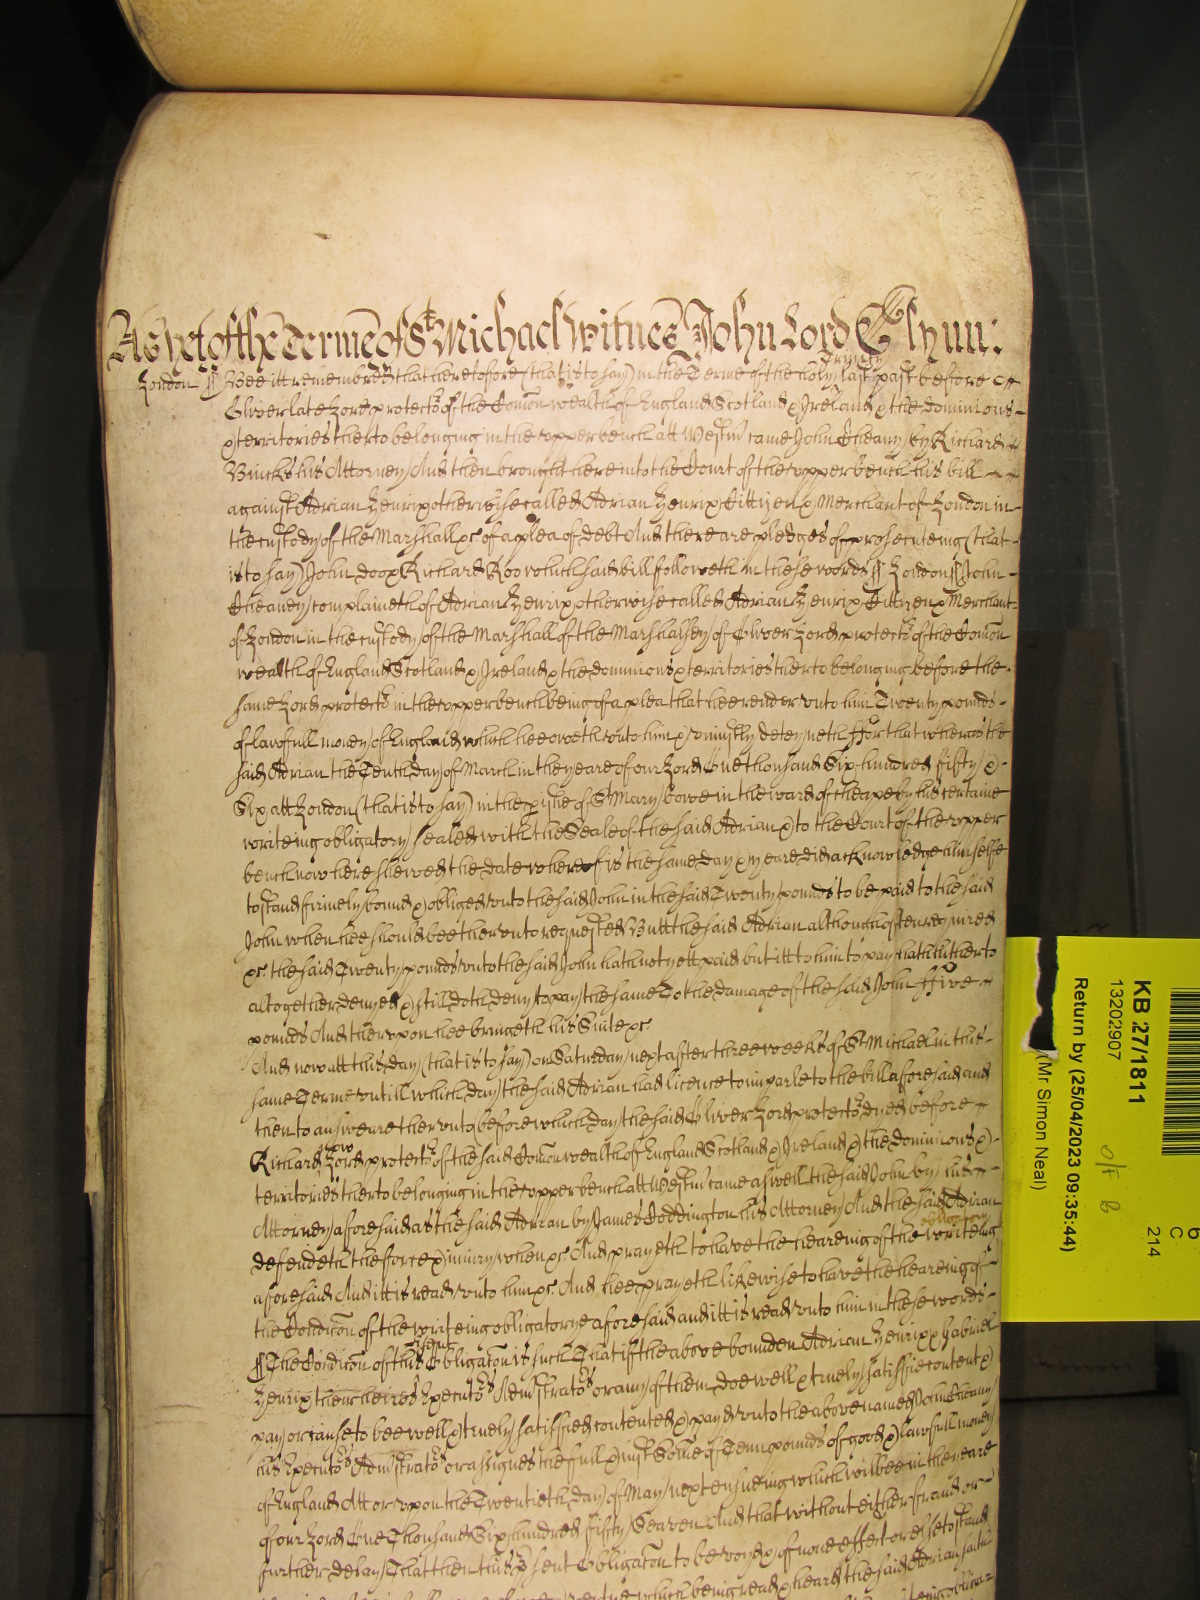 As yet of the Terme of St Michael Witnes John Lord Glynn:
London ss Bee itt remembred that heretofore (that is to say) in the Terme of the holy Trinity last past before
Oliver late Lord protector of the Comon wealth of England Scotland & Ireland & the dominions
& territories therto belonging in the upper bench att Westmr came John Cheaney by Richard
Bucks his Attorney And then brought here into the Court of the upper bench his bill
against Adrian Henrix otherwise called Adrian Henrix Cittizen & Merchant of London in
the custody of the Marshall &c of a plea of debt And there are pledges of prosecuteing (that
is to say) John doo & Richard Roo which said bill followeth in these words ss London ss John
Cheaney complaineth of Adrian Henrix otherwise called Adrian Henrix Cittizen & Merchant
of London in the custody of the Marshall of the Marshalsey of Oliver Lord protector of the Comon
wealth of England Scotland & Ireland & the dominions & territories therto belonging before the
same Lord protector in the upper bench being of a plea that hee render unto him Twenty pounds
of lawfull money of England which hee oweth unto him & uniustly deteyneth ffor that whereas the
said Adrian the Tenth day of March in the yeare of our Lord One thousand Six hundred fifty &
Six att London (that is to say) in the pishe of St Mary bowe in the ward of cheape by his certaine
writeing obligatory sealed with the Seale of the said Adrian & to the Court of the upper
bench now here shewed the date wherof is the same day & yeare did acknowledge himselfe
to stand firmely bound & obliged unto the said John in the said Twenty pounds to be paid to the said
John when hee should bee therunto requested Butt the said Adrian although often required
&c the said Twenty pounds unto the said John hath not yett paid but itt to him to pay hath hitherto
altogether denyed & still doth deny to pay the same To the damage of the said John ffive
pounds And therupon hee bringeth his Suite &c
And now att this day (that is to say) on Saturday next after three weeks of St Michael in this
same Terme untill which day the said Adrian had licence to imparle to the bill aforesaid and
then to answeare therunto before which day the said Oliver Lord protector dyed before
Richard now Lord protector of the said Comon wealth of England Scotland & Ireland & the dominions &
territories therto belonging in the upper bench att Westmr came aswell the said John by his
Attorney aforesaid as the said Adrian by James Boddington his Attorney And the said Adrian
defendeth the force & iniury when &c And prayeth to have the heareing of the writeing obligatory
aforesaid And itt is read unto him &c And hee prayeth likewise to have the heareing of
the Condicon of the writeing obligatorye aforesaid and itt is read unto him in these words
ss The Condicon of this psent Obligacon is such That if the above bounden Adrian Henrix & Gabriel
Henrix their heires Executors Admistrators or any of them doe well & truely satisfie content &
pay or cause to bee well & truely satisfied contented & payd unto the above named John Cheaney
his Executors Admistrators or assignes the full & iust Some of Tenn pounds of good & lawfull money
of England Att or upon the Twentieth day of May next ensueing which wilbee in the yeare
of our Lord One Thousand Six hundred fifty Seaven And that without either fraud or
further delay That then this psent Obligacon to be voyd & of none effect or else to stand
which being read & heard the said Adrian saith
KB 27/1811
13202907
Return by (25/04/2023 09:35:44)
(Mr Simon Neal)
O/F B
6
C
214